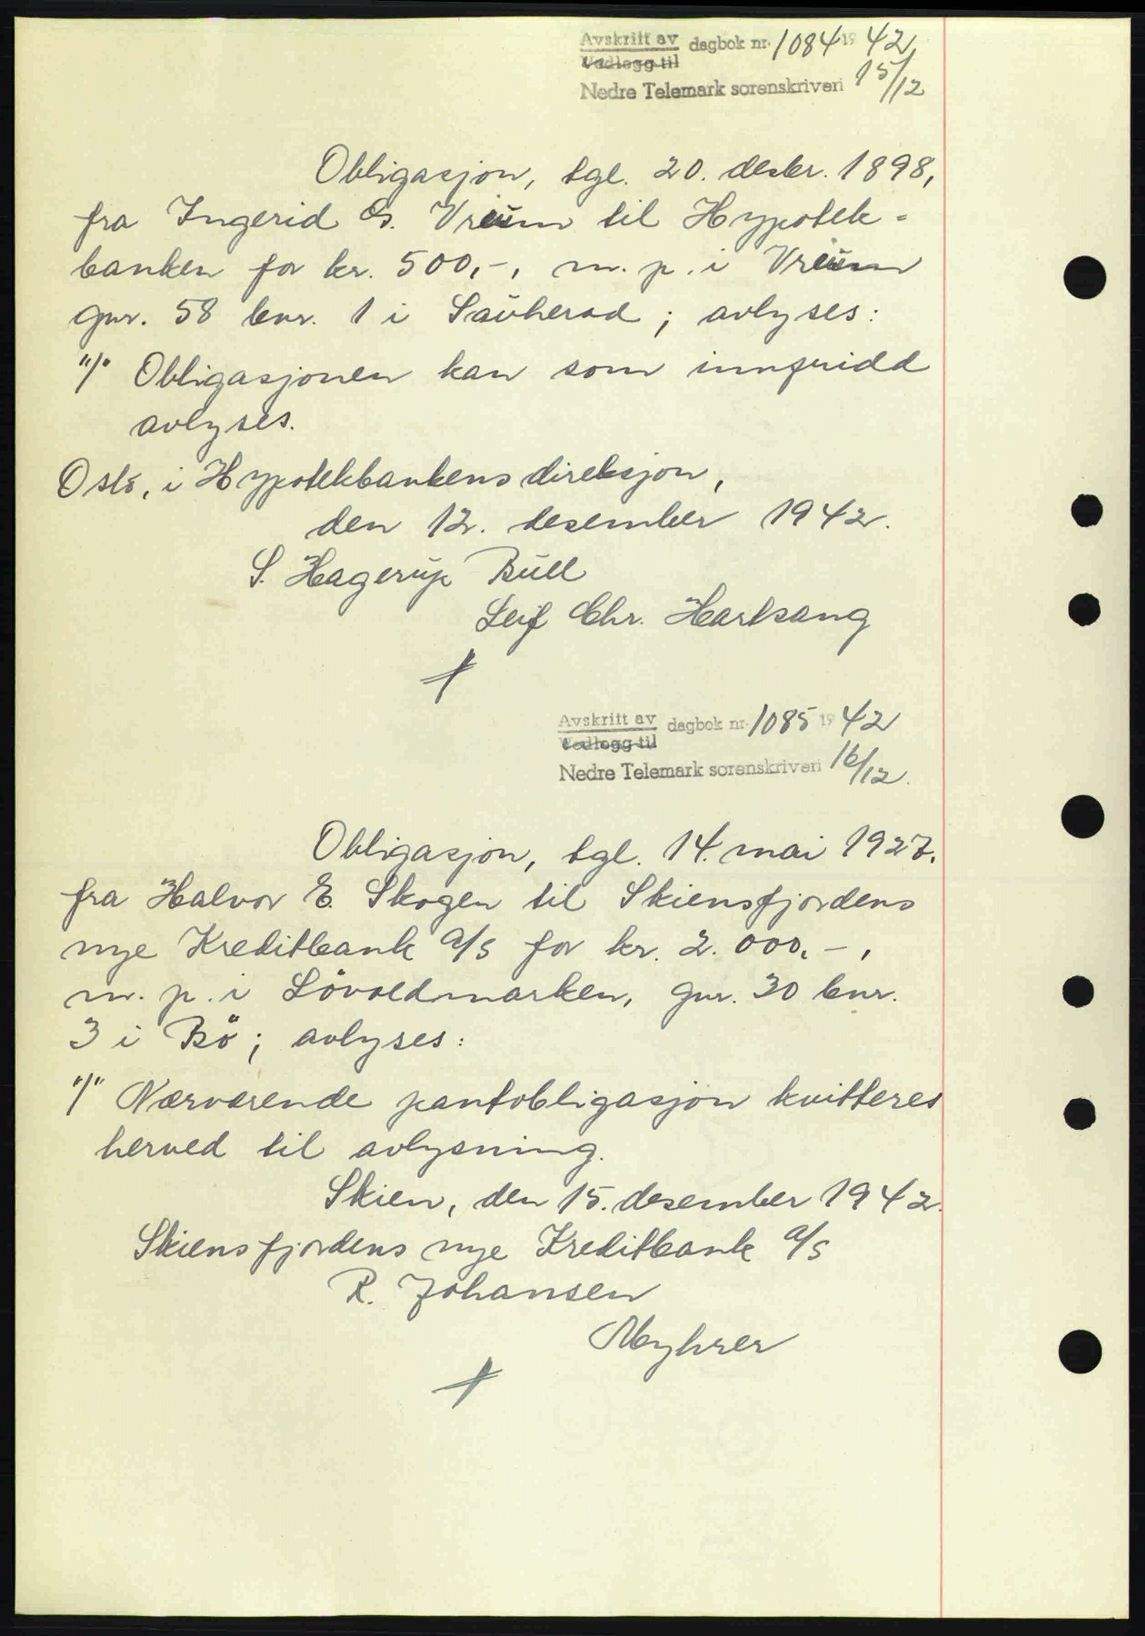 Avskrift av dagbok nr. 1084 1942
Vedlegg til
Nedre Telemark sorenskriveri 15/12
Obligasjon, tgl. 20. desbr. 1898,
fra Ingerid O. Vreim til Hypotek-
banken for kr. 500,-, m. p. i Vreim
gnr. 58 bnr. 1 i Sauherad; avlyses:
"/" Obligasjonen kan som innfridd
avlyses.
Oslo, i Hypotekbankens direksjon,
den 12. desember 1942.
S. Hagerup Bull
Leif Chr. Hartsang
Avskrift av dagbok nr. 1085 1942
Vedlegg til
Nedre Telemark sorenskriveri 16/12.
Obligasjon, tgl. 14. mai 1927.
fra Halvor E. Skogen til Skiensfjordens
nye Kreditbank a/s for kr. 2.000,-,
m. p. i Lövoldmarken, gnr. 30 bnr.
3 i Bö; avlyses:
"/" Nærværende pantobligasjon kvitteres
herved til avlysning.
Skien, den 15. desember 1942.
Skiensfjordens nye Kreditbank a/s
R. Johansen
Myhrer